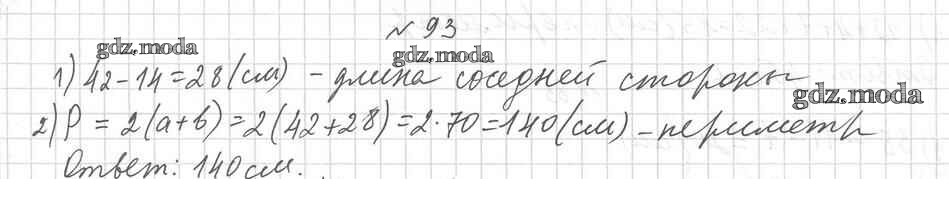 № 93
gdz.moda gdz.moda
1) 42-14=28(см) - длина соседней стороны
gdz.moda
2) P = 2(a+b)=2(42+28)=2·70=140(см) - периметр
Ответ: 140 см.